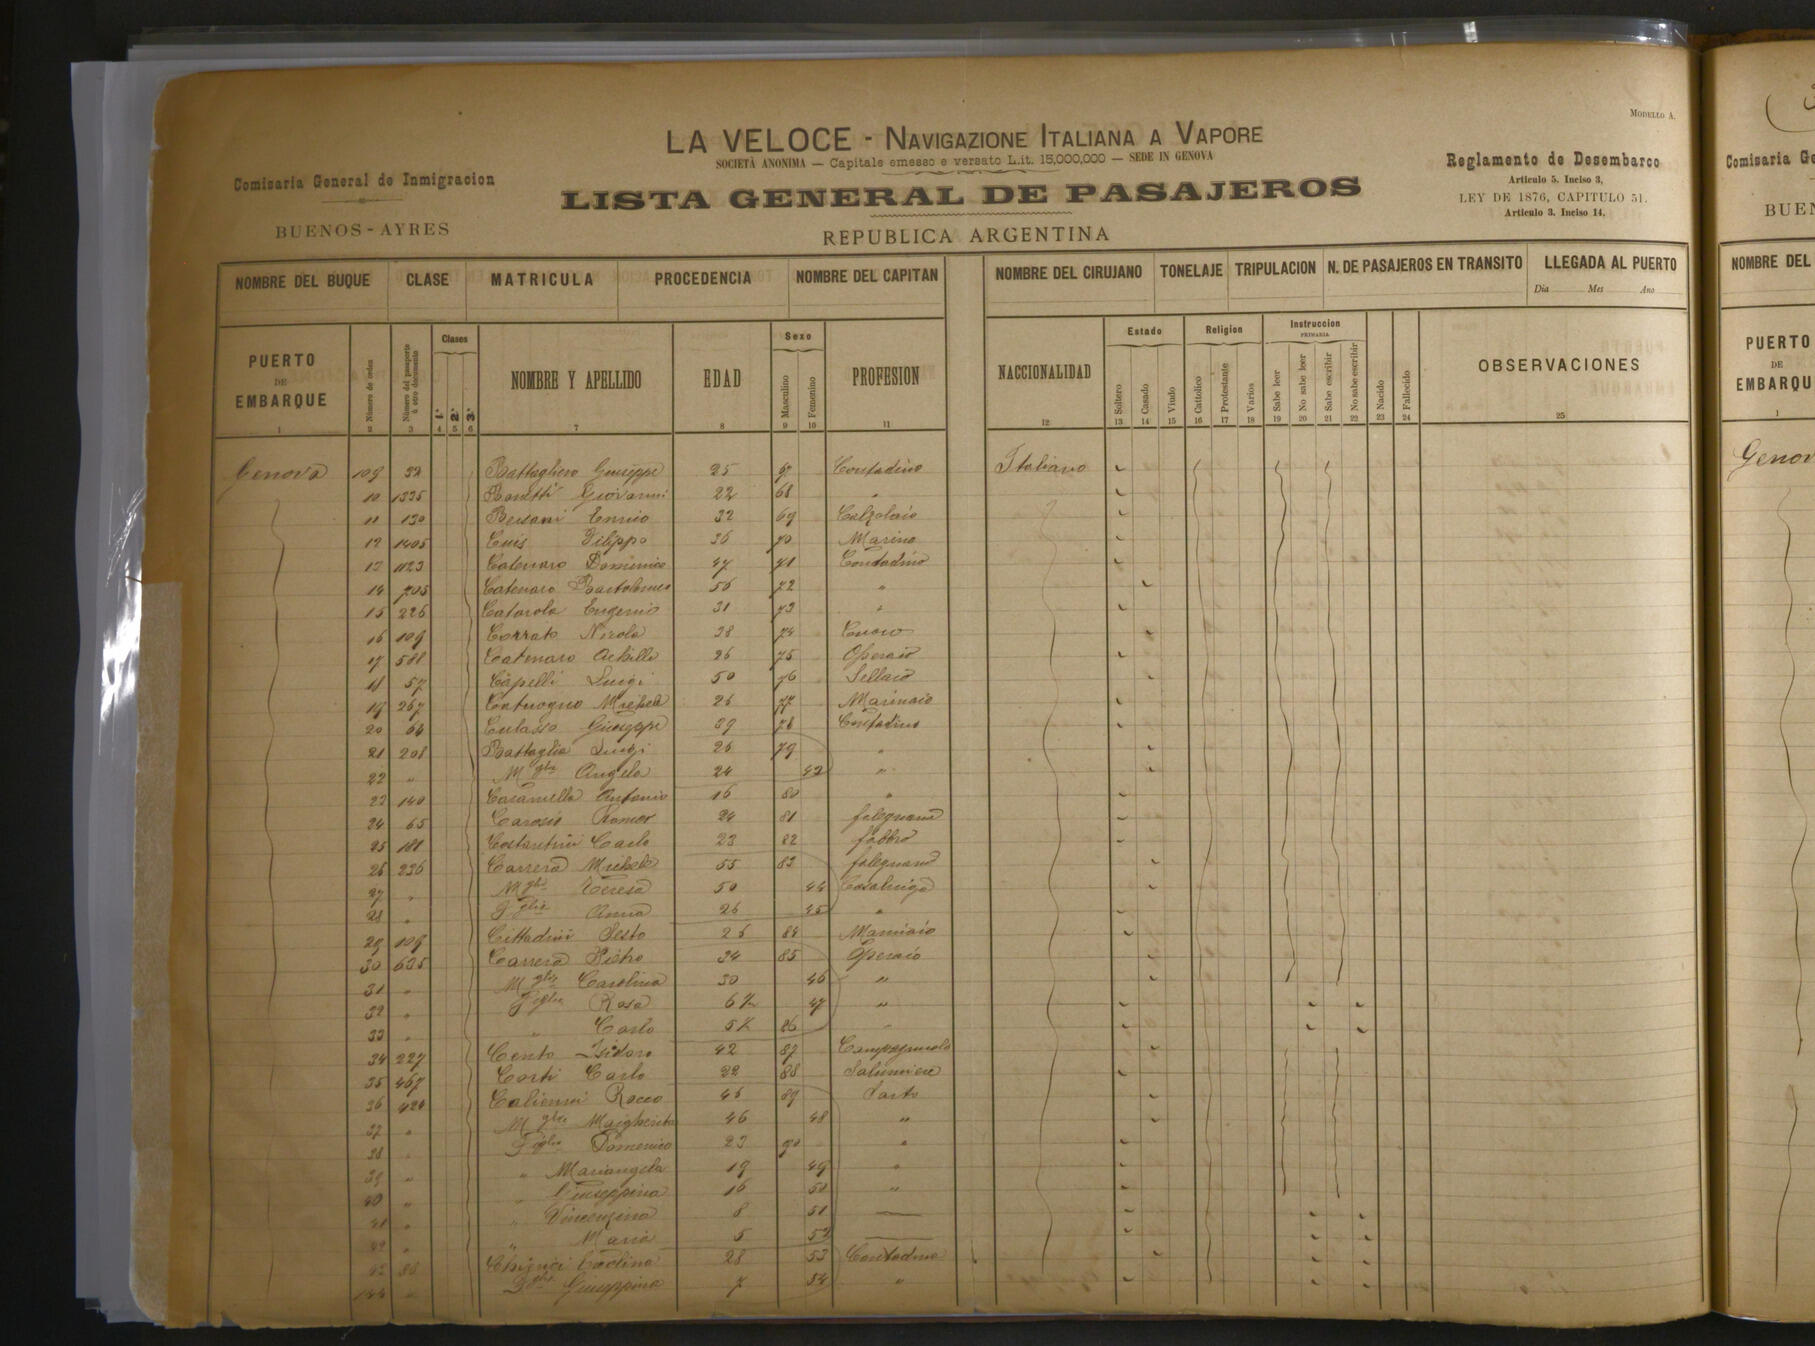 MODELLO A.
LA VELOCE - NAVIGAZIONE ITALIANA A VAPORE
SOCIETÀ ANONIMA — Capitale emesso e versato L.it. 15,000,000 — SEDE IN GENOVA
Comisaria General de Inmigracion
BUENOS-AYRES
LISTA GENERAL DE PASAJEROS
REPUBLICA ARGENTINA
Reglamento de Desembarco
Articulo 5. Inciso 3,
LEY DE 1876, CAPITULO 51.
Articulo 3. Inciso 14.
NOMBRE DEL BUQUE CLASE MATRICULA PROCEDENCIA NOMBRE DEL CAPITAN NOMBRE DEL CIRUJANO TONELAJE TRIPULACION N. DE PASAJEROS EN TRANSITO LLEGADA AL PUERTO
Dia Mes Ano
PUERTO DE EMBARQUE Número de orden Número del pasaporte ú otro documento Clases 1ª 2ª 3ª NOMBRE Y APELLIDO EDAD Sexo Masculino Femenino PROFESION NACCIONALIDAD Estado Soltero Casado Viudo Religion Cattolico Protestante Varios Instruccion PRIMARIA Sabe leer No sabe leer Sabe escribir No sabe escribir Nacido Fallecido OBSERVACIONES
1 2 3 4 5 6 7 8 9 10 11 12 13 14 15 16 17 18 19 20 21 22 23 24 25
Genova 109 32 Battagliero Giuseppe 25 67 Contadino Italiano
10 1335 Bonetti Giovanni 22 68 "
11 130 Bersani Ennio 32 69 Calzolaio
12 1405 Filippo 36 70 Marino
13 1123 Catenaro Domenico 47 71 Contadino
14 705 Catenaro Bartolomeo 56 72 "
15 226 Catarola Eugenio 31 73 "
16 109 Corrato Nicola 38 74
17 581 Catenaro Achille 26 75 Operaio
18 57 Capelli Luigi 50 76 Sellaio
19 267 Michele 26 77 Marinaio
20 64 Giuseppe 39 78 Contadino
21 208 Battaglia Luigi 26 79 "
22 " Mglie Angela 24 43 "
23 140 Antonio 16 80 "
24 65 24 81 falegname
25 181 Costantini Carlo 23 82 fabbro
26 236 Carrera Michele 55 83 falegname
27 " Mglie Teresa 50 44 Casalinga
28 " Figlia Anna 26 45 "
29 109 Cittadini Sesto 26 84 Marinaio
30 635 Carrera Pietro 34 85 Operaio
31 " Mglie Carolina 30 46 "
32 " Figlia Rosa 6½ 47 "
33 " " Carlo 5½ 86
34 227 Cento Isidoro 42 87
35 467 Corti Carlo 22 88 Salumiere
36 420 Rocco 46 89 Sarto
37 " Mglie Margherita 46 48 "
38 " Figlio Domenico 23 90 "
39 " " Mariangela 19 49 "
40 " " Giuseppina 16 50 "
41 " " Vincenzina 8 51
42 " " Maria 5 52
43 28 53 Contadina
144 " Giuseppina 7 54 "
Comisaria
BUEN
NOMBRE DEL
PUERTO
DE
EMBARQU
1
Genov